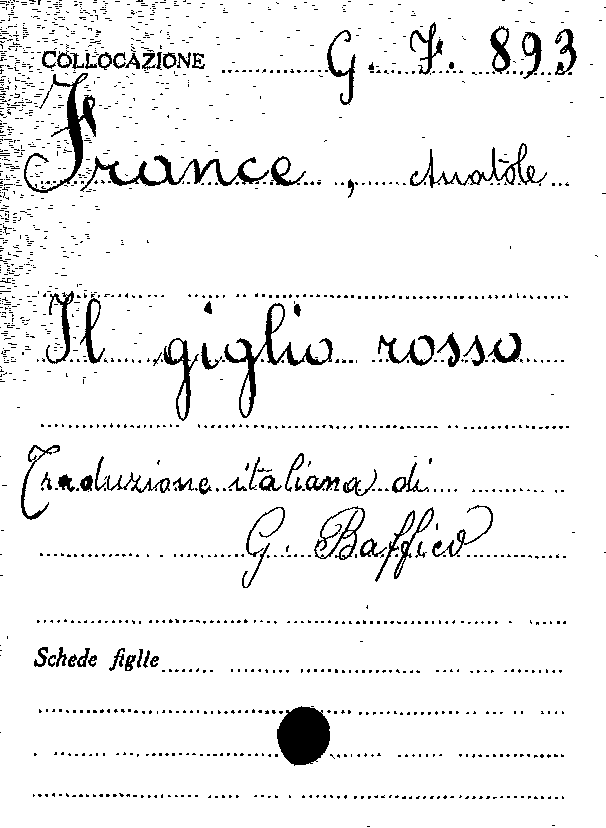 COLLOCAZIONE G. F. 893
France, Anatole
Il giglio rosso
Traduzione italiana di
G. Baffico
Schede figlie